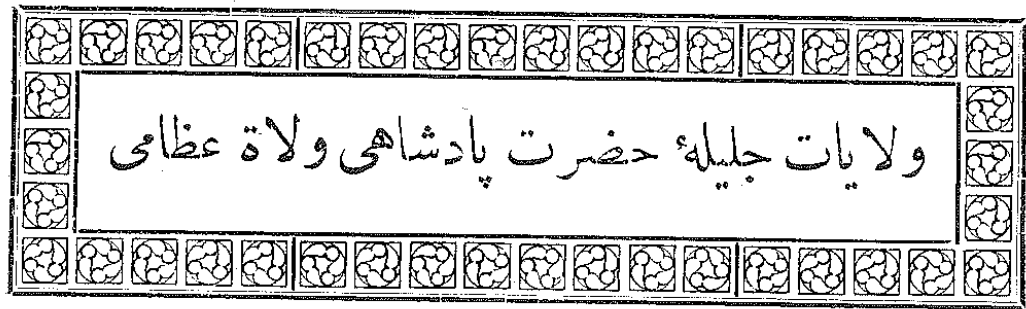 ولایات جلیلهٔ حضرت پادشاهی ولاة عظامی